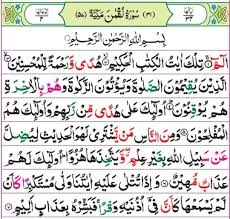 (٣١) سُوْرَةُ لُقْمٰنَ مَكِّيَّةٌ
بِسْمِ اللّٰهِ الرَّحْمٰنِ الرَّحِيْمِ
الٓمّٓ ۚ تِلْكَ اٰيٰتُ الْكِتٰبِ الْحَكِيْمِ ۙ هُدًى وَّرَحْمَةً لِّلْمُحْسِنِيْنَ ۙ
الَّذِيْنَ يُقِيْمُوْنَ الصَّلٰوةَ وَيُؤْتُوْنَ الزَّكٰوةَ وَهُمْ بِالْاٰخِرَةِ
هُمْ يُوْقِنُوْنَ ؕ اُولٰٓئِكَ عَلٰى هُدًى مِّنْ رَّبِّهِمْ وَاُولٰٓئِكَ هُمُ
الْمُفْلِحُوْنَ وَمِنَ النَّاسِ مَنْ يَّشْتَرِيْ لَهْوَ الْحَدِيْثِ لِيُضِلَّ
عَنْ سَبِيْلِ اللّٰهِ بِغَيْرِ عِلْمٍ وَّيَتَّخِذَهَا هُزُوًا ؕ اُولٰٓئِكَ لَهُمْ
عَذَابٌ مُّهِيْنٌ وَاِذَا تُتْلٰى عَلَيْهِ اٰيٰتُنَا وَلّٰى مُسْتَكْبِرًا كَاَنْ
لَّمْ يَسْمَعْهَا كَاَنَّ فِيْٓ اُذُنَيْهِ وَقْرًا ۚ فَبَشِّرْهُ بِعَذَابٍ اَلِيْمٍ